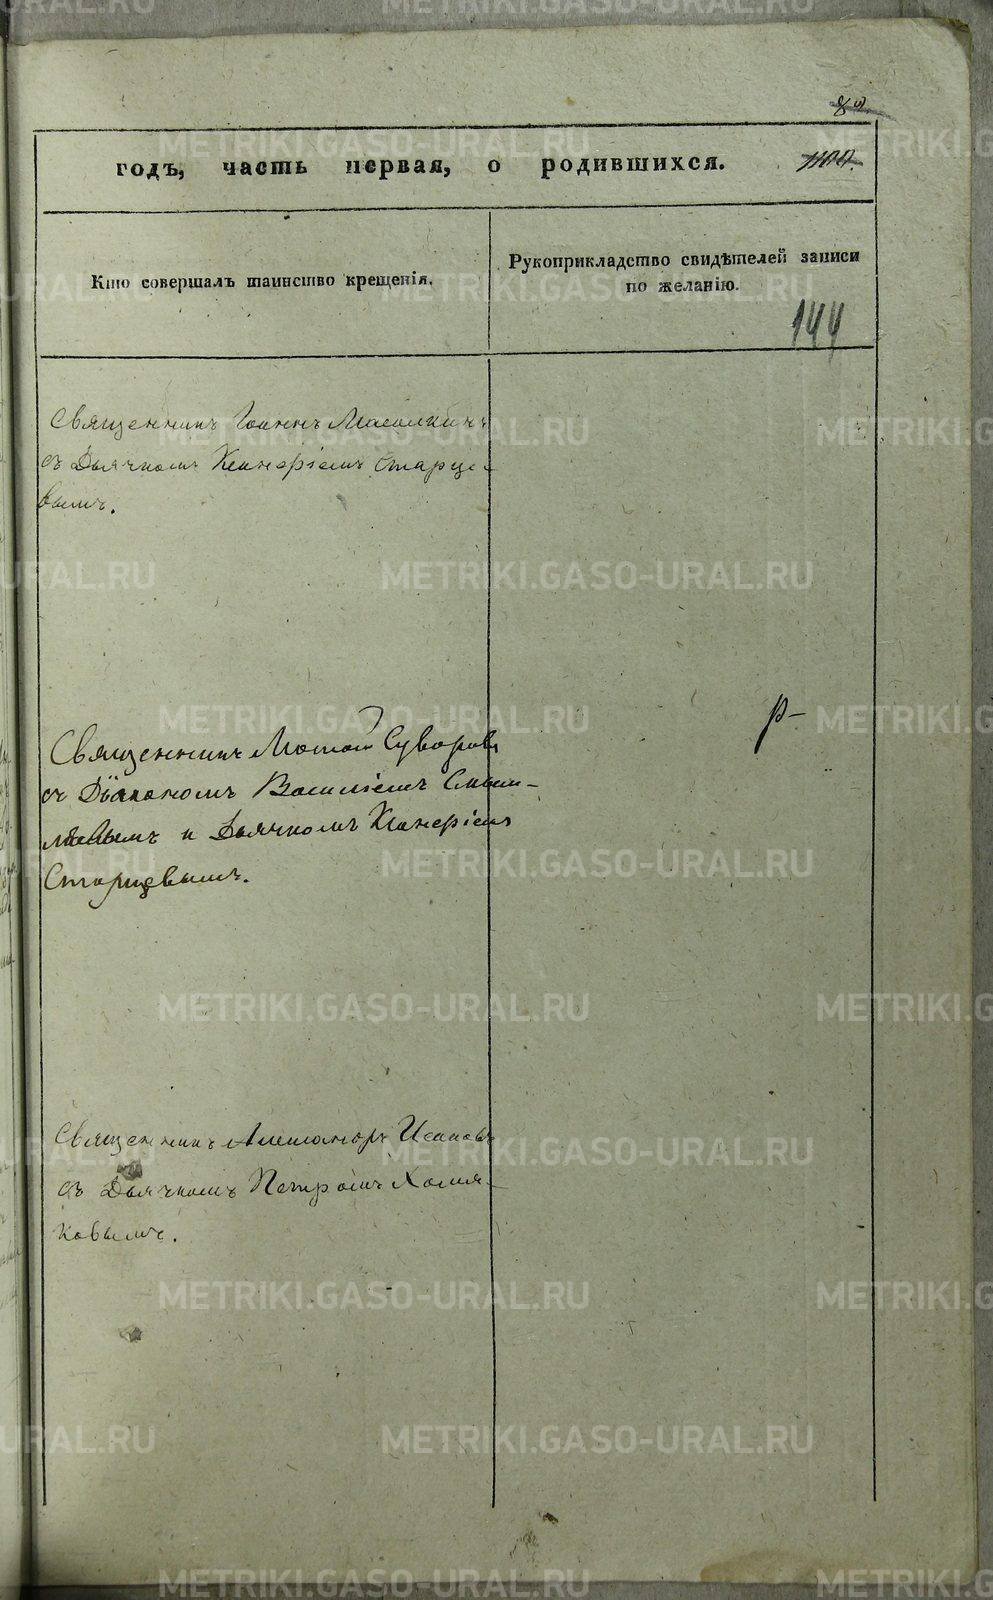 годъ, часть первая, о родившихся.
Кто совершалъ таинство крещенія.
Рукоприкладство свидѣтелей записи
по желанію.
144
Священникъ Іоаннъ
съ Дьячкомъ Старце-
вымъ.
Священникъ Суворовъ
съ Діакономъ Василіемъ
и Дьячкомъ
Старцевымъ.
р-
Священникъ Александръ Исаковъ
съ Дьячкомъ Петромъ Хомя-
ковымъ.
METRIKI.GASO-URAL.RU